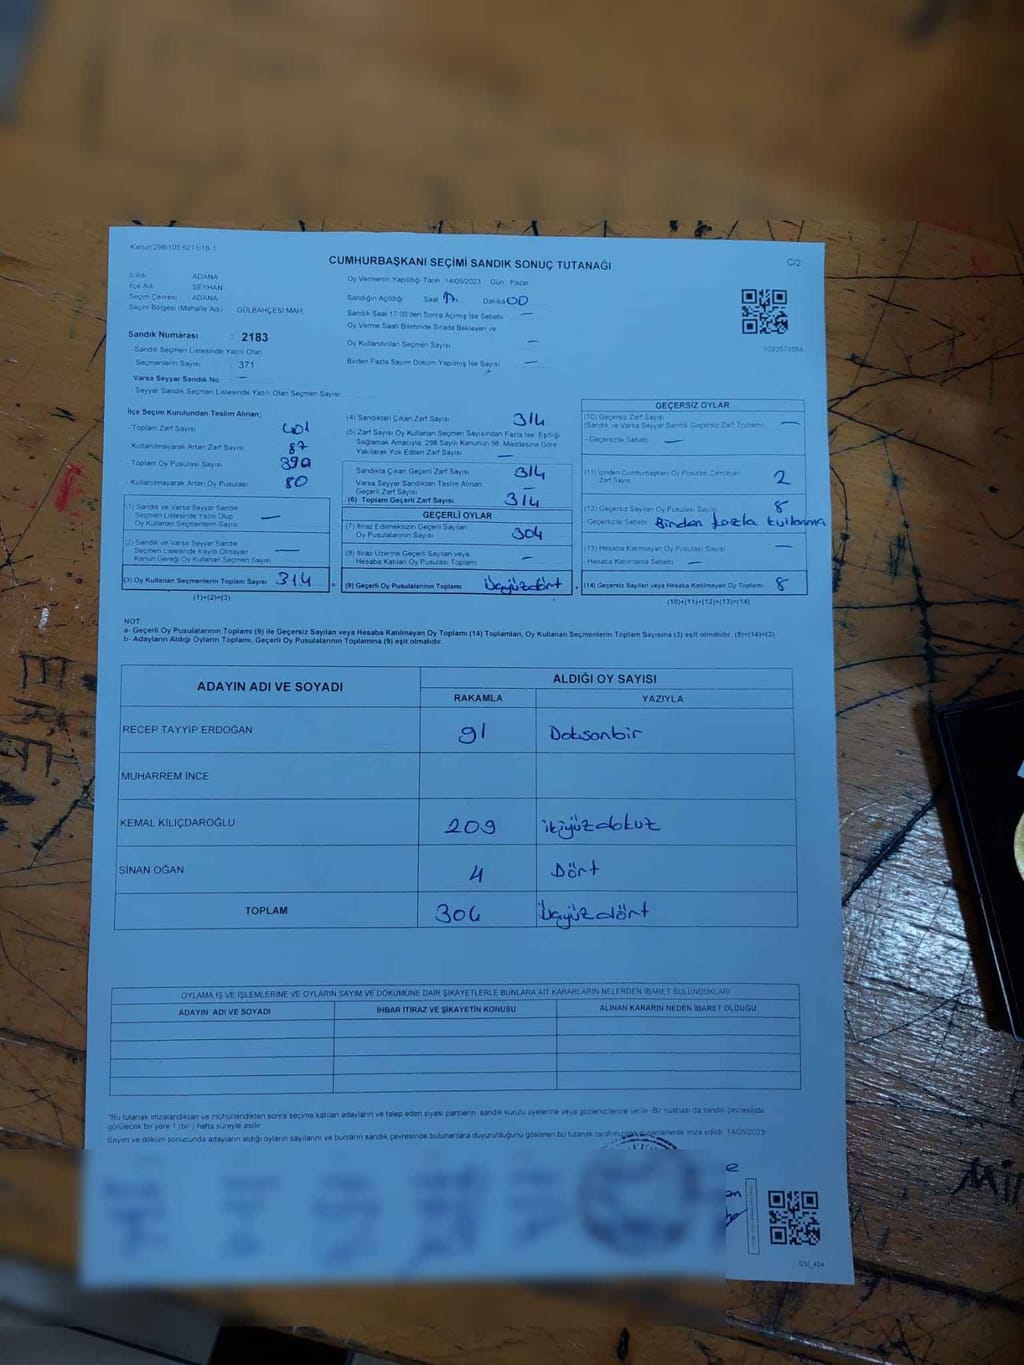 Kanun:298/105.6271/1b-1
CUMHURBAŞKANI SEÇİMİ SANDIK SONUÇ TUTANAĞI
C/2
İl Adı : ADANA
İlçe Adı : SEYHAN
Seçim Çevresi : ADANA
Seçim Bölgesi (Mahalle Adı) : GÜLBAHÇESİ MAH.
Sandık Numarası : 2183
- Sandık Seçmen Listesinde Yazılı Olan
Seçmenlerin Sayısı : 371
Varsa Seyyar Sandık No : —
- Seyyar Sandık Seçmen Listesinde Yazılı Olan Seçmen Sayısı:
Oy Vermenin Yapıldığı Tarih : 14/05/2023 Gün : Pazar
Sandığın Açıldığı Saat Dakika 00
Sandık Saat 17:00'den Sonra Açılmış İse Sebebi —
Oy Verme Saati Bitiminde Sırada Bekleyen ve
Oy Kullandırılan Seçmen Sayısı —
Birden Fazla Sayım Döküm Yapılmış İse Sayısı —
1033573584
İlçe Seçim Kurulundan Teslim Alınan;
- Toplam Zarf Sayısı : 401
- Kullanılmayarak Artan Zarf Sayısı : 87
- Toplam Oy Pusulası Sayısı :
- Kullanılmayarak Artan Oy Pusulası : 80
(1) Sandık ve Varsa Seyyar Sandık
Seçmen Listesinde Yazılı Olup
Oy Kullanan Seçmenlerin Sayısı —
(2) Sandık ve Varsa Seyyar Sandık
Seçmen Listesinde Kayıtlı Olmayan
Kanun Gereği Oy Kullanan Seçmen Sayısı —
(3) Oy Kullanan Seçmenlerin Toplam Sayısı 314
(1)+(2)=(3)
(4) Sandıktan Çıkan Zarf Sayısı 314
(5) Zarf Sayısı Oy Kullanan Seçmen Sayısından Fazla İse; Eşitliği
Sağlamak Amacıyla, 298 Sayılı Kanunun 98. Maddesine Göre
Yakılarak Yok Edilen Zarf Sayısı —
Sandıkta Çıkan Geçerli Zarf Sayısı 314
Varsa Seyyar Sandıktan Teslim Alınan
Geçerli Zarf Sayısı —
(6) Toplam Geçerli Zarf Sayısı 314
GEÇERLİ OYLAR
(7) İtiraz Edilmeksizin Geçerli Sayılan
Oy Pusulasının Sayısı 304
(8) İtiraz Üzerine Geçerli Sayılan veya
Hesaba Katılan Oy Pusulası Toplamı —
(9) Geçerli Oy Pusulalarının Toplamı Üçyüzdört
GEÇERSİZ OYLAR
(10) Geçersiz Zarf Sayısı
(Sandık ve Varsa Seyyar Sandık Geçersiz Zarf Toplamı) —
- Geçersizlik Sebebi : —
(11) İçinden Cumhurbaşkanı Oy Pusulası Çıkmayan
Zarf Sayısı 2
(12) Geçersiz Sayılan Oy Pusulası Sayısı 8
- Geçersizlik Sebebi : Birden fazla kullanma
(13) Hesaba Katılmayan Oy Pusulası Sayısı —
- Hesaba Katılmama Sebebi : —
(14) Geçersiz Sayılan veya Hesaba Katılmayan Oy Toplamı 8
(10)+(11)+(12)+(13)=(14)
NOT:
a- Geçerli Oy Pusulalarının Toplamı (9) ile Geçersiz Sayılan veya Hesaba Katılmayan Oy Toplamı (14) Toplamları, Oy Kullanan Seçmenlerin Toplam Sayısına (3) eşit olmalıdır. (9)+(14)=(3)
b- Adayların Aldığı Oyların Toplamı, Geçerli Oy Pusulalarının Toplamına (9) eşit olmalıdır.
ADAYIN ADI VE SOYADI
ALDIĞI OY SAYISI
RAKAMLA YAZIYLA
RECEP TAYYİP ERDOĞAN 91 Doksanbir
MUHARREM İNCE
KEMAL KILIÇDAROĞLU 209 ikiyüzdokuz
SİNAN OĞAN 4 Dört
TOPLAM 304 Üçyüzdört
OYLAMA İŞ VE İŞLEMLERİNE VE OYLARIN SAYIM VE DÖKÜMÜNE DAİR ŞİKAYETLERLE BUNLARA AİT KARARLARIN NELERDEN İBARET BULUNDUKLARI
ADAYIN ADI VE SOYADI İHBAR İTİRAZ VE ŞİKAYETİN KONUSU ALINAN KARARIN NEDEN İBARET OLDUĞU
"Bu tutanak imzalandıktan ve mühürlendikten sonra seçime katılan adayların ve talep eden siyasi partilerin sandık kurulu üyelerine veya gözlemcilerine verilir. Bir nüshası da sandık çevresinde
görülecek bir yere 1 (bir) hafta süreyle asılır.
Sayım ve döküm sonucunda adayların aldığı oyların sayılarını ve bunların sandık çevresinde bulunanlara duyurulduğunu gösteren bu tutanak tarafımızdan düzenlenerek imza edildi. 14/05/2023
SSI_404